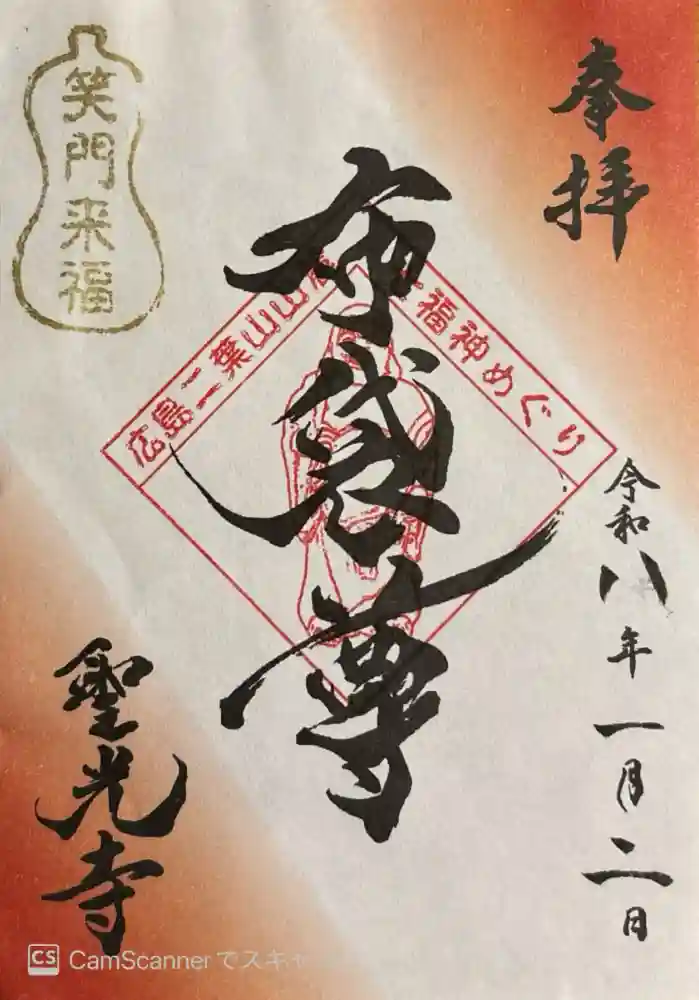 奉拝
令和八年一月二日
布袋尊
広島二葉山山
福神めぐり
笑門来福
聖光寺
CS CamScannerでスキャ